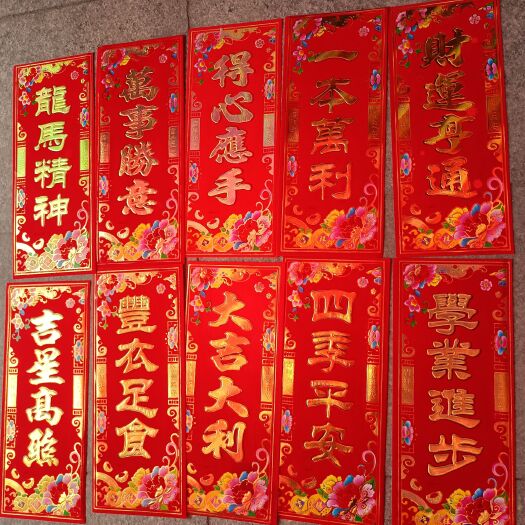 龍馬精神
萬事勝意
得心應手
一本萬利
財運亨通
吉星高照
豐衣足食
大吉大利
四季平安
學業進步